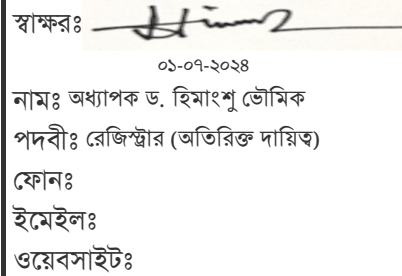 স্বাক্ষরঃ
০১-০৭-২০২৪
নামঃ অধ্যাপক ড. হিমাংশু ভৌমিক
পদবীঃ রেজিস্ট্রার (অতিরিক্ত দায়িত্ব)
ফোনঃ
ইমেইলঃ
ওয়েবসাইটঃ